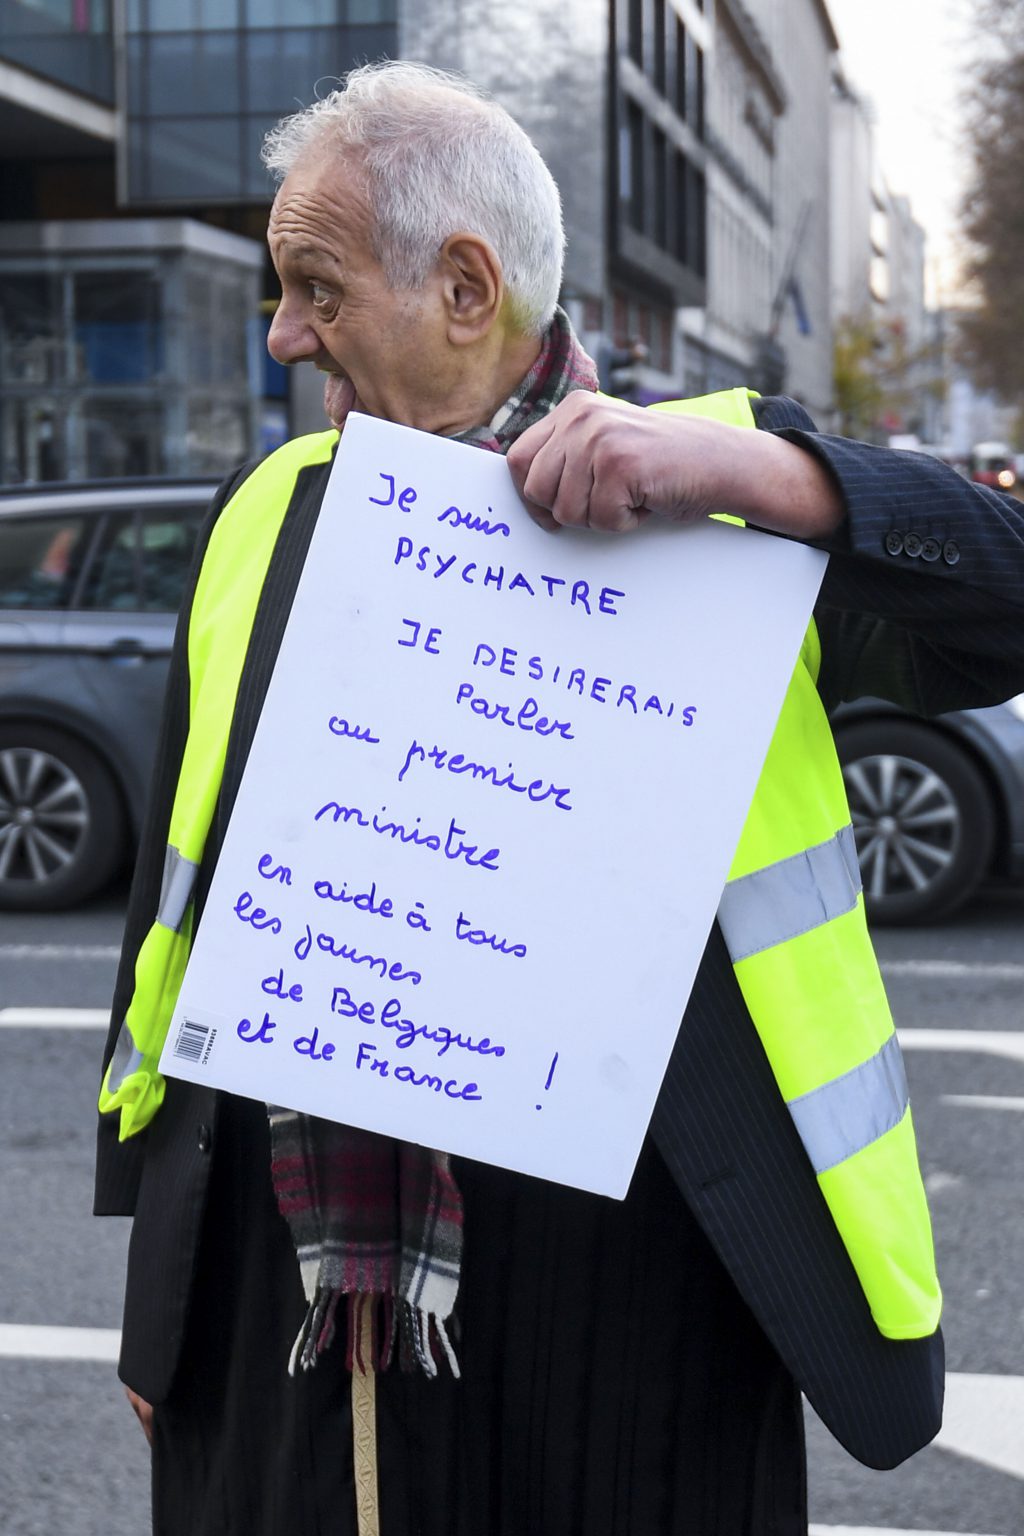 Je suis
PSYCHATRE
JE DESIRERAIS
Parler
au premier
ministre
en aide à tous
les jaunes
de Belgiques
et de France !